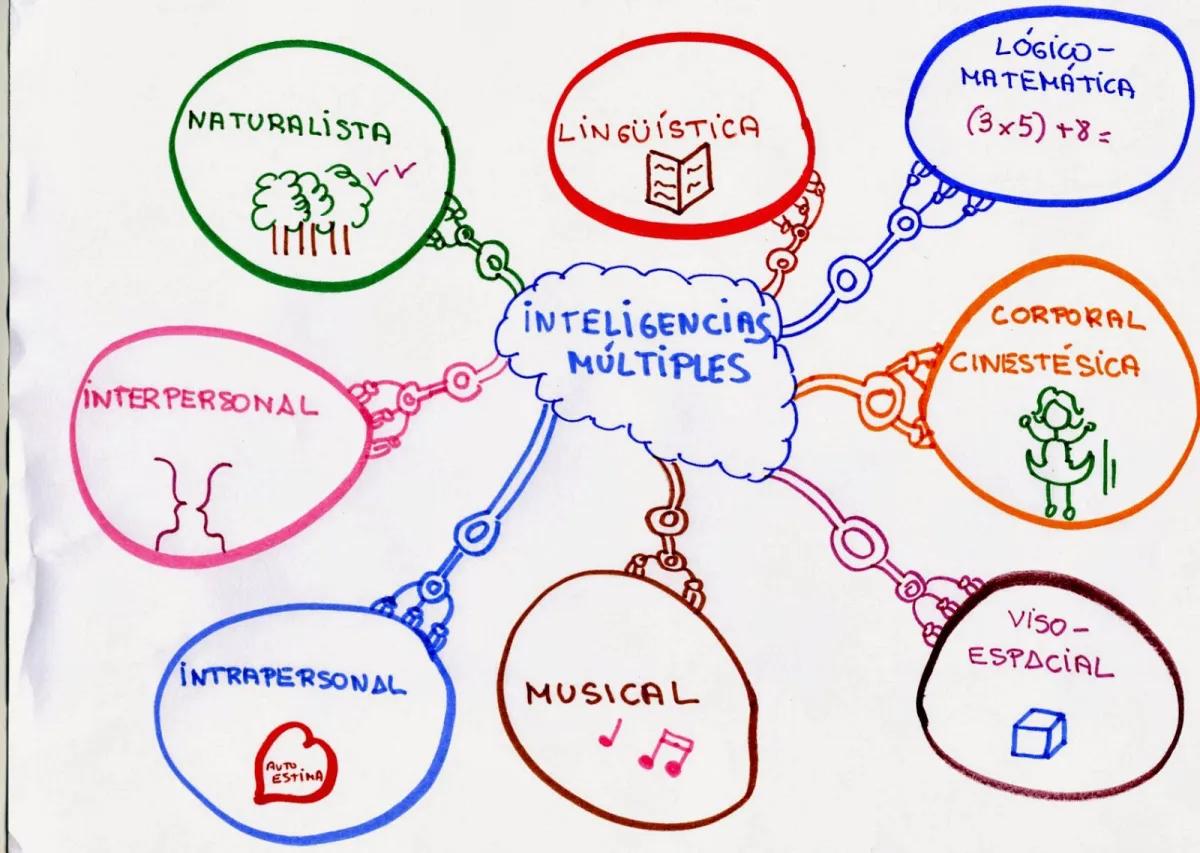 NATURALISTA
LINGÜÍSTICA
LÓGICO-
MATEMÁTICA
(3x5)+8=
INTELIGENCIAS
MÚLTIPLES
CORPORAL
CINESTÉSICA
INTERPERSONAL
INTRAPERSONAL
AUTO
ESTIMA
MUSICAL
VISO-
ESPACIAL